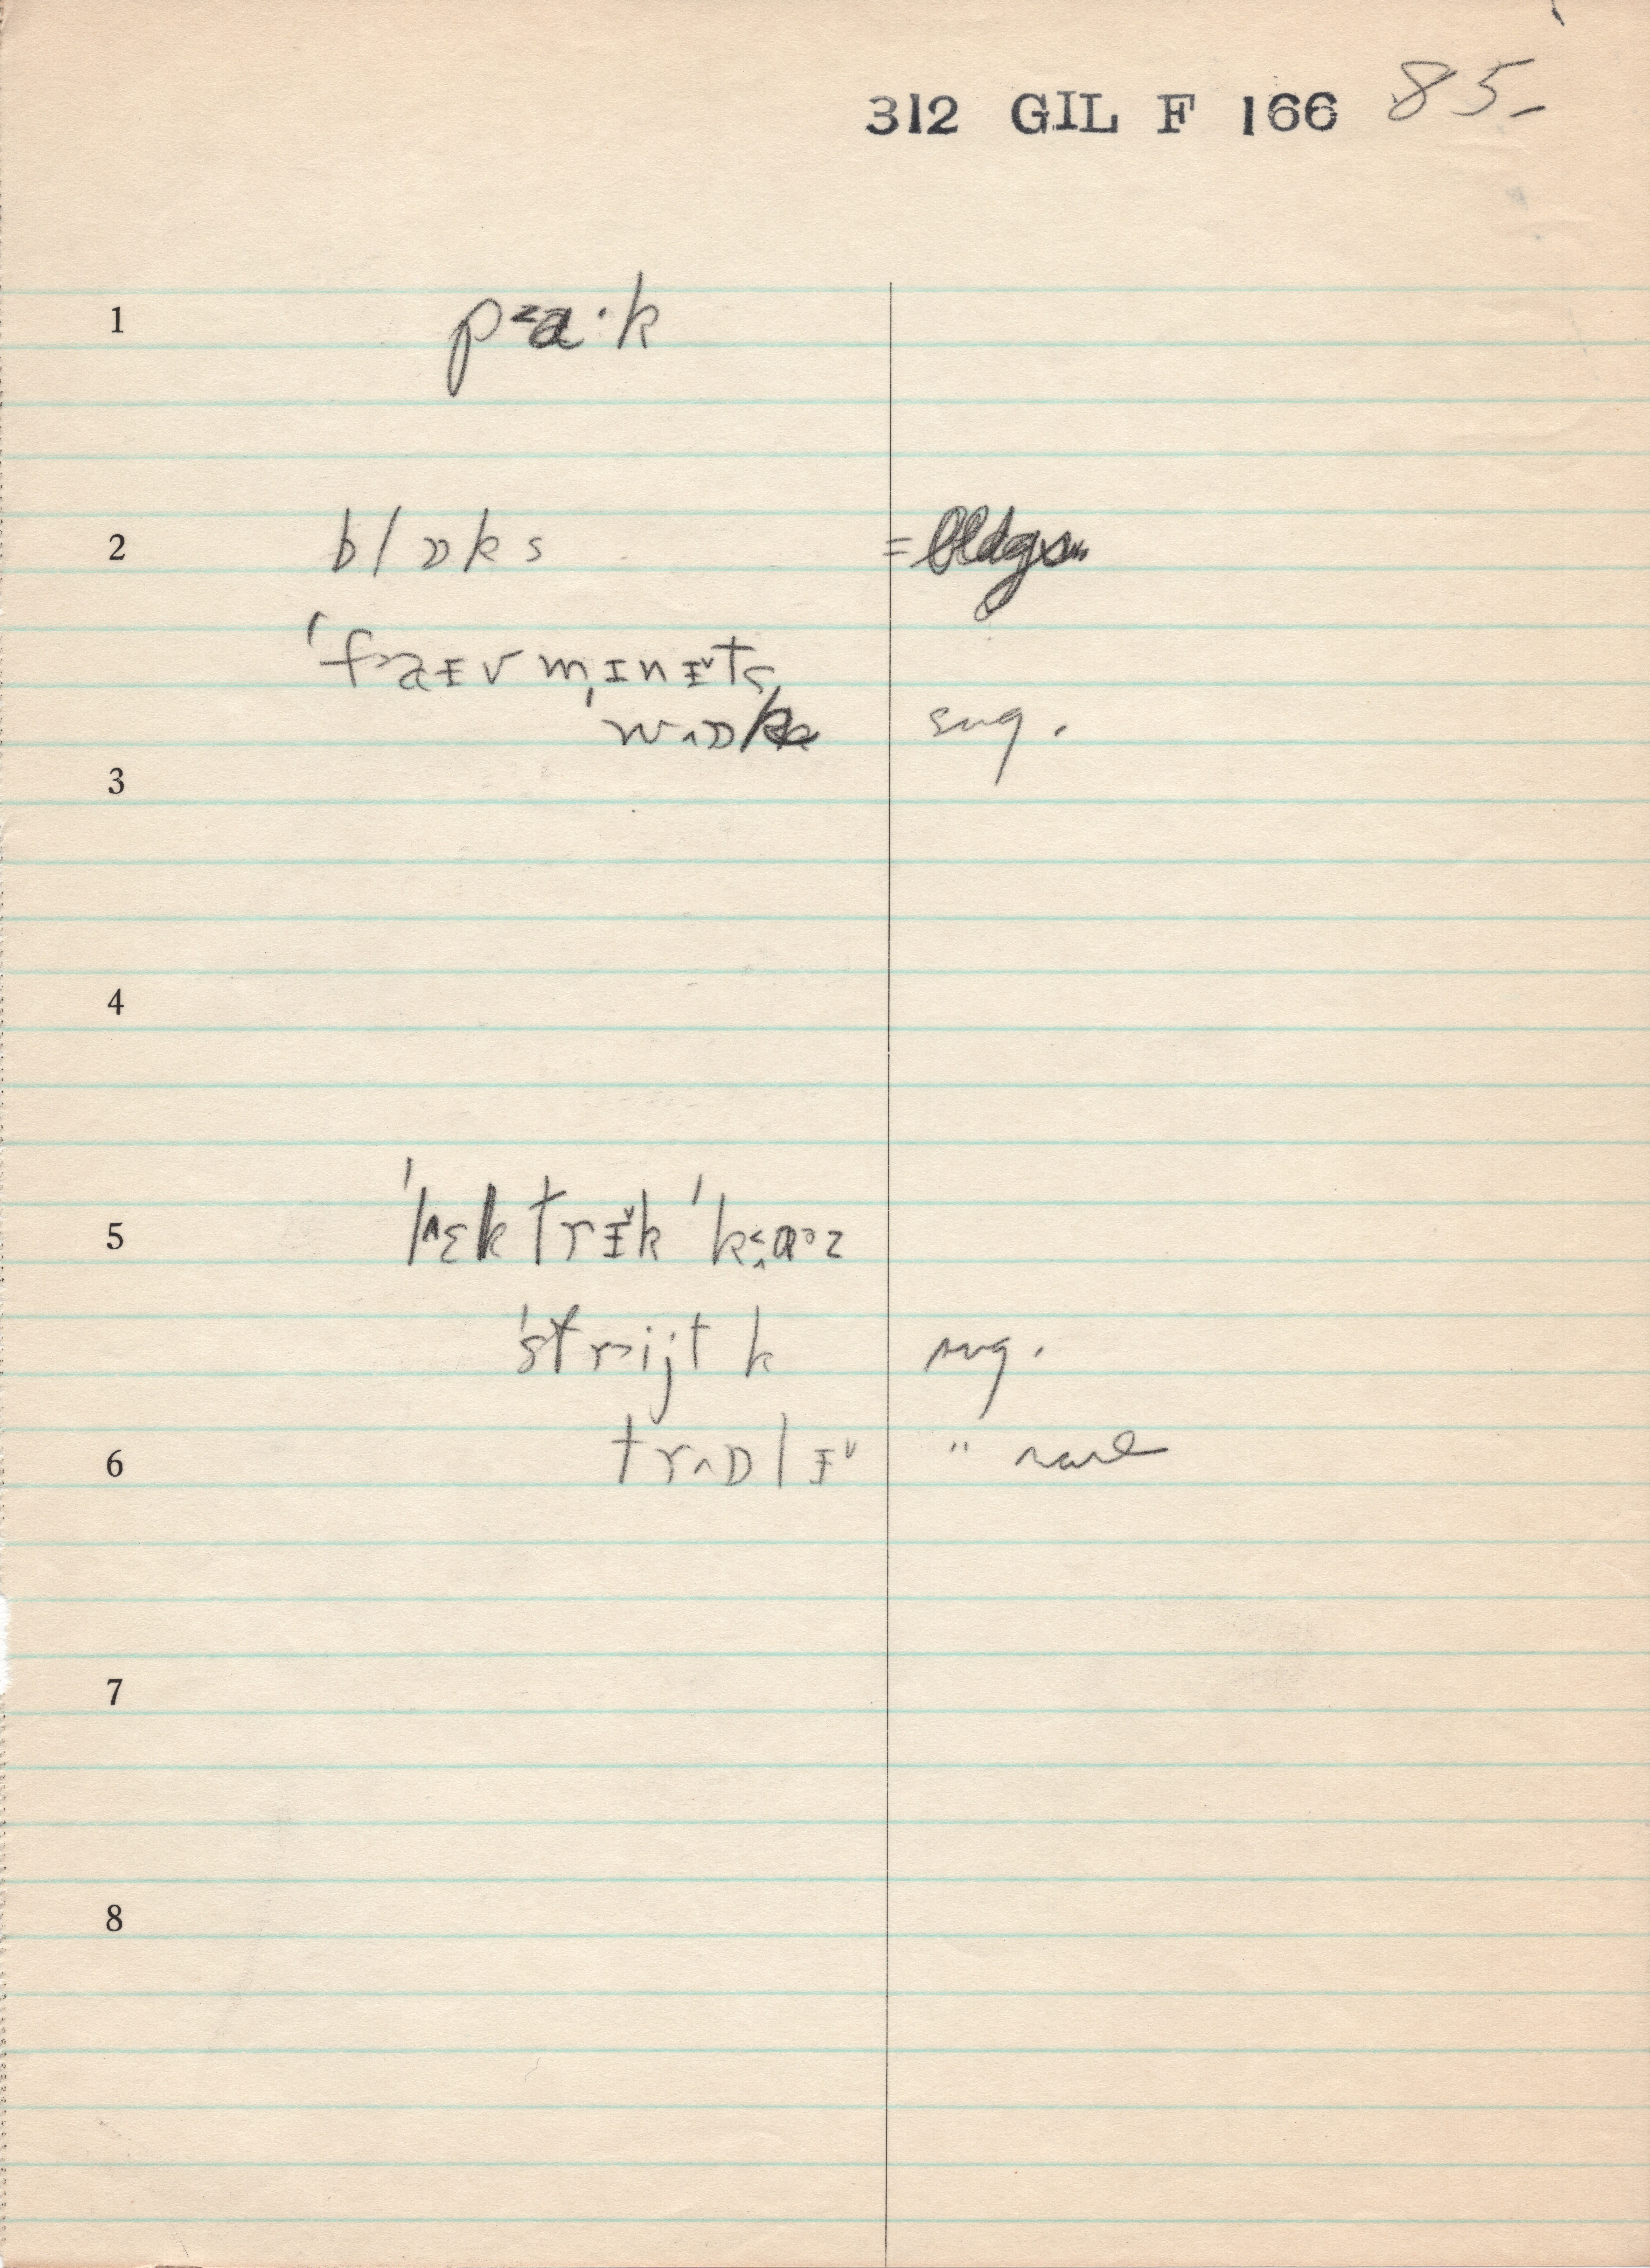 312 GIL F 166 85-
1 p˂a·k
2 blɒks = bldgs.
ˈfɑɪv mˌɪnɪ˅ts
wˆɒk sug.
3
4
5 ˈlˆɛktrɪ˅k ˈk˂ɑᵊz
ˈstrijt k sug.
6 trˆɒlɪ˅ " rare
7
8